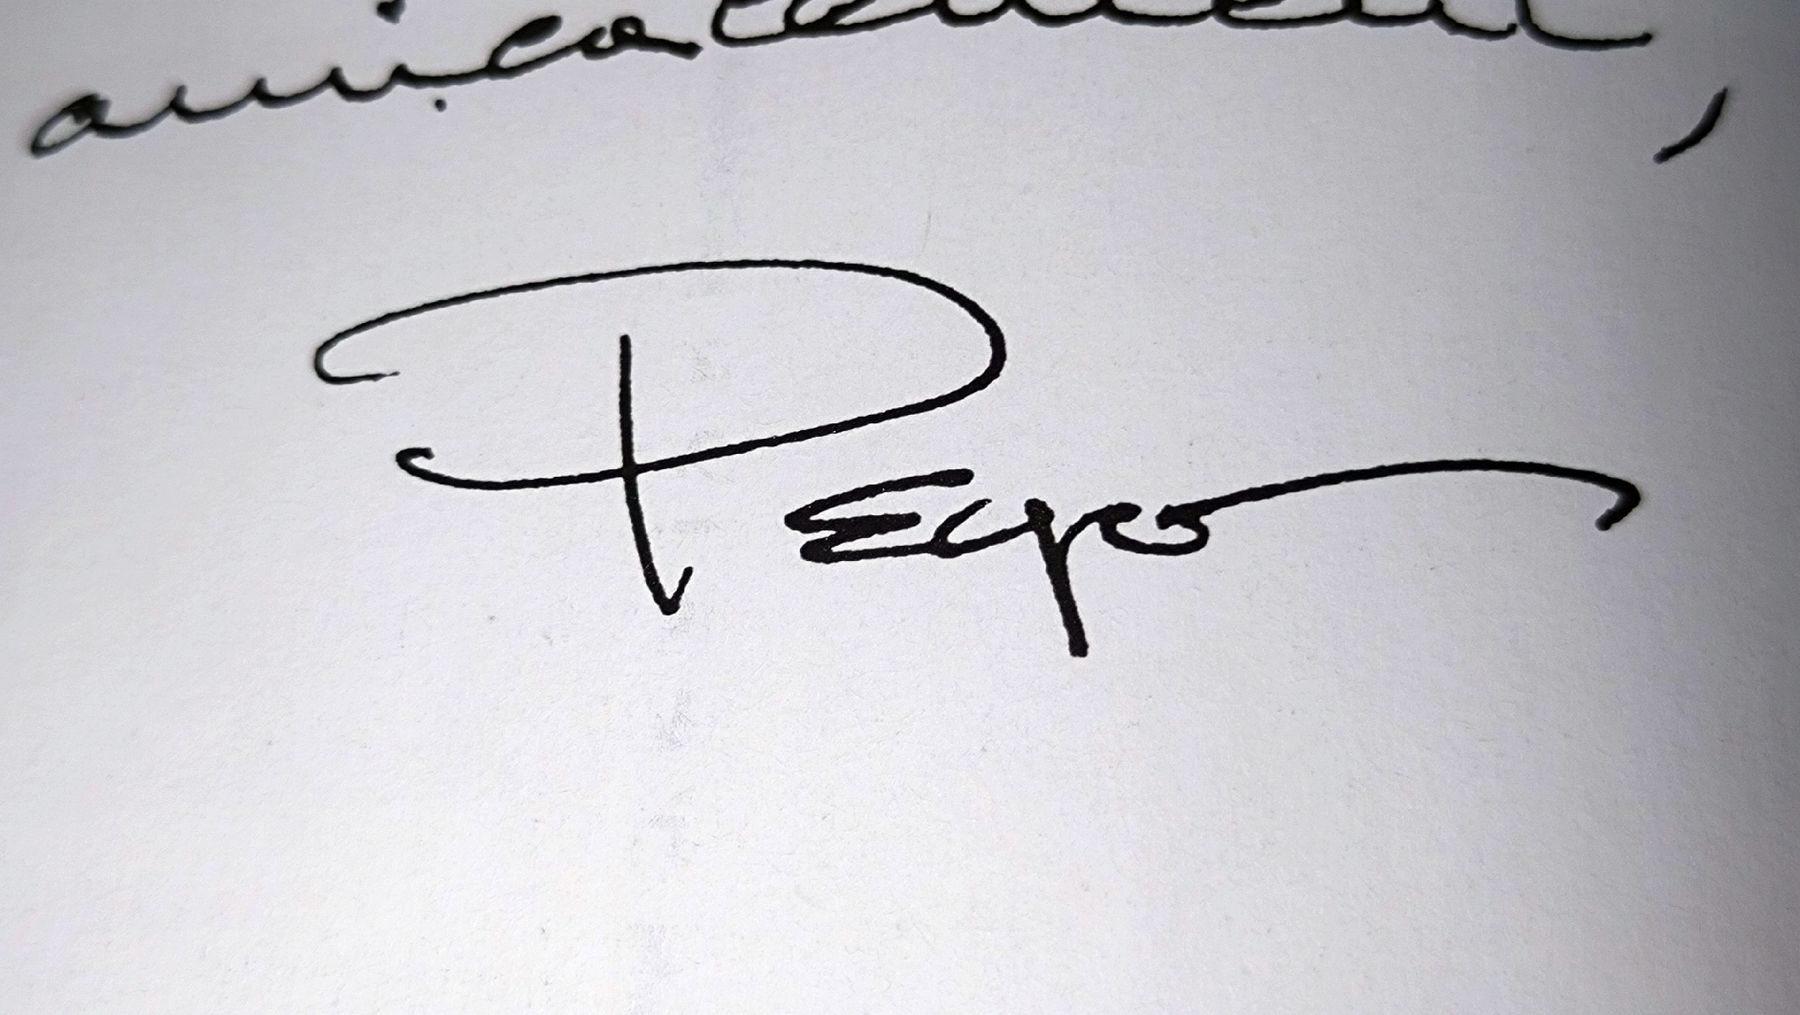 amicalement,
Peyo